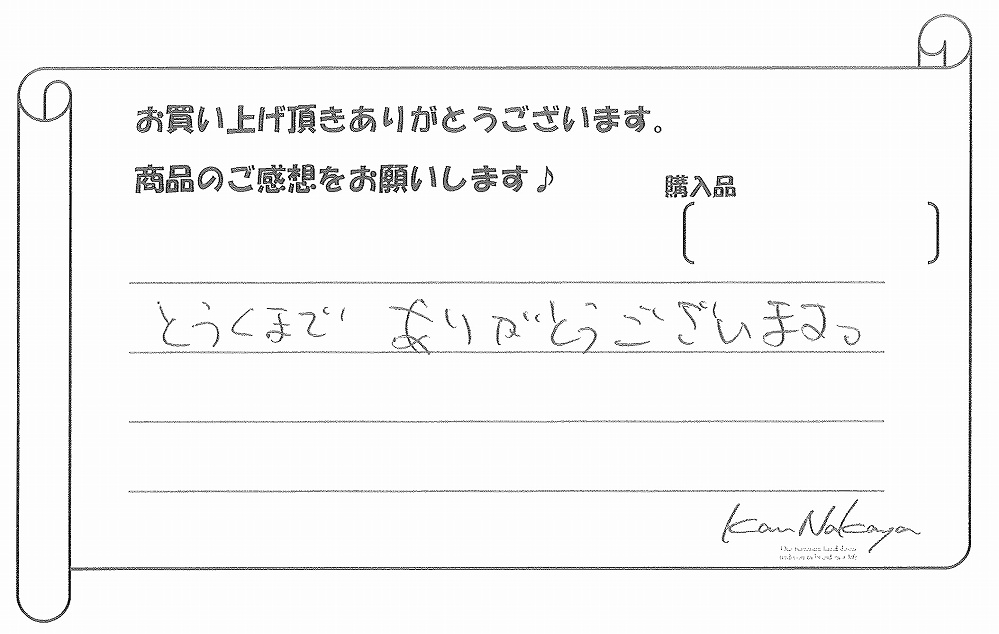 お買い上げ頂きありがとうございます。
商品のご感想をお願いします♪
購入品
とうくまで ありがとうございます。
Kan Nakaya